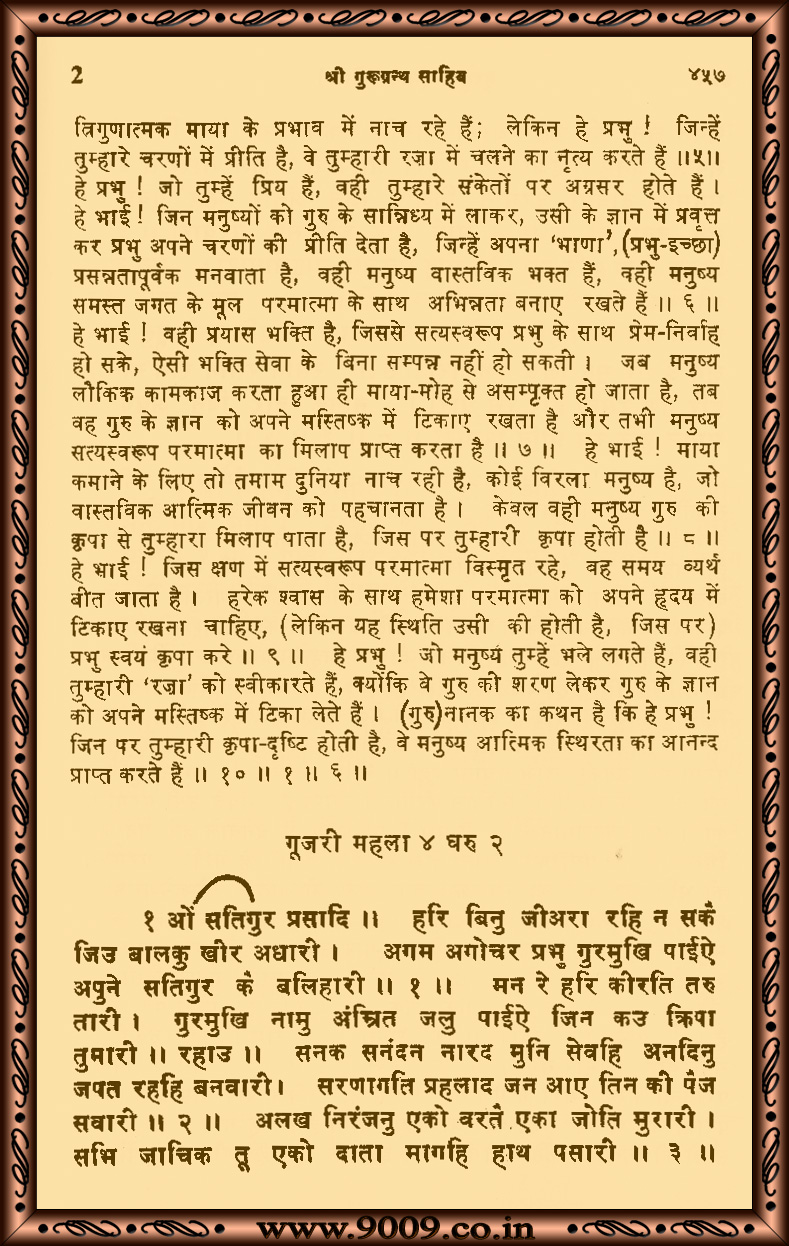 2 श्री गुरूग्रन्थ साहिब ४५७
त्रिगुणात्मक माया के प्रभाव में नाच रहे हैं; लेकिन हे प्रभु ! जिन्हें
तुम्हारे चरणों में प्रीति है, वे तुम्हारी रज़ा में चलने का नृत्य करते हैं ॥५॥
हे प्रभु ! जो तुम्हें प्रिय हैं, वही तुम्हारे संकेतों पर अग्रसर होते हैं ।
हे भाई ! जिन मनुष्यों को गुरु के सान्निध्य में लाकर, उसी के ज्ञान में प्रवृत्त
कर प्रभु अपने चरणों की प्रीति देता है, जिन्हें अपना ‘भाणा’,(प्रभु-इच्छा)
प्रसन्नतापूर्वक मनवाता है, वही मनुष्य वास्तविक भक्त हैं, वही मनुष्य
समस्त जगत के मूल परमात्मा के साथ अभिन्नता बनाए रखते हैं ॥ ६ ॥
हे भाई ! वही प्रयास भक्ति है, जिससे सत्यस्वरूप प्रभु के साथ प्रेम-निर्वाह
हो सके, ऐसी भक्ति सेवा के बिना सम्पन्न नहीं हो सकती । जब मनुष्य
लौकिक कामकाज करता हुआ ही माया-मोह से असम्पृक्त हो जाता है, तब
वह गुरु के ज्ञान को अपने मस्तिष्क में टिकाए रखता है और तभी मनुष्य
सत्यस्वरूप परमात्मा का मिलाप प्राप्त करता है ॥ ७ ॥ हे भाई ! माया
कमाने के लिए तो तमाम दुनिया नाच रही है, कोई विरला मनुष्य है, जो
वास्तविक आत्मिक जीवन को पहचानता है । केवल वही मनुष्य गुरु की
कृपा से तुम्हारा मिलाप पाता है, जिस पर तुम्हारी कृपा होती है ॥ ८ ॥
हे भाई ! जिस क्षण में सत्यस्वरूप परमात्मा विस्मृत रहे, वह समय व्यर्थ
बीत जाता है । हरेक श्वास के साथ हमेशा परमात्मा को अपने हृदय में
टिकाए रखना चाहिए, (लेकिन यह स्थिति उसी की होती है, जिस पर)
प्रभु स्वयं कृपा करे ॥ ९ ॥ हे प्रभु ! जो मनुष्य तुम्हें भले लगते हैं, वही
तुम्हारी ‘रज़ा’ को स्वीकारते हैं, क्योंकि वे गुरु की शरण लेकर गुरु के ज्ञान
को अपने मस्तिष्क में टिका लेते हैं । (गुरु)नानक का कथन है कि हे प्रभु !
जिन पर तुम्हारी कृपा-दृष्टि होती है, वे मनुष्य आत्मिक स्थिरता का आनन्द
प्राप्त करते हैं ॥ १० ॥ १ ॥ ६ ॥
गूजरी महला ४ घरु २
१ ओं सतिगुर प्रसादि ॥ हरि बिनु जीअरा रहि न सकै
जिउ बालकु खीर अधारी । अगम अगोचर प्रभु गुरमुखि पाईऐ
अपुने सतिगुर कै बलिहारी ॥ १ ॥ मन रे हरि कीरति तरु
तारी । गुरमुखि नामु अंम्रित जलु पाईऐ जिन कउ क्रिपा
तुमारी ॥ रहाउ ॥ सनक सनंदन नारद मुनि सेवहि अनदिनु
जपत रहहि बनवारी। सरणागति प्रहलाद जन आए तिन की पैज
सवारी ॥ २ ॥ अलख निरंजनु एको वरतै एका जोति मुरारी ।
सभि जाचिक तू एको दाता मागहि हाथ पसारी ॥ ३ ॥
www.9009.co.in